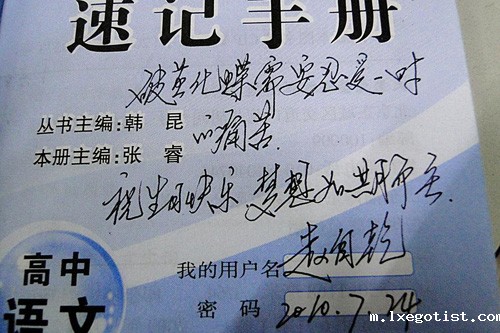 速记手册
破茧化蝶需要忍受一时
丛书主编:韩 昆
的痛苦.
本册主编:张 睿
祝生日快乐 梦想如期而至.
高中
语文
我的用户名
密 码 2010.7.24
m.lxegotist.com